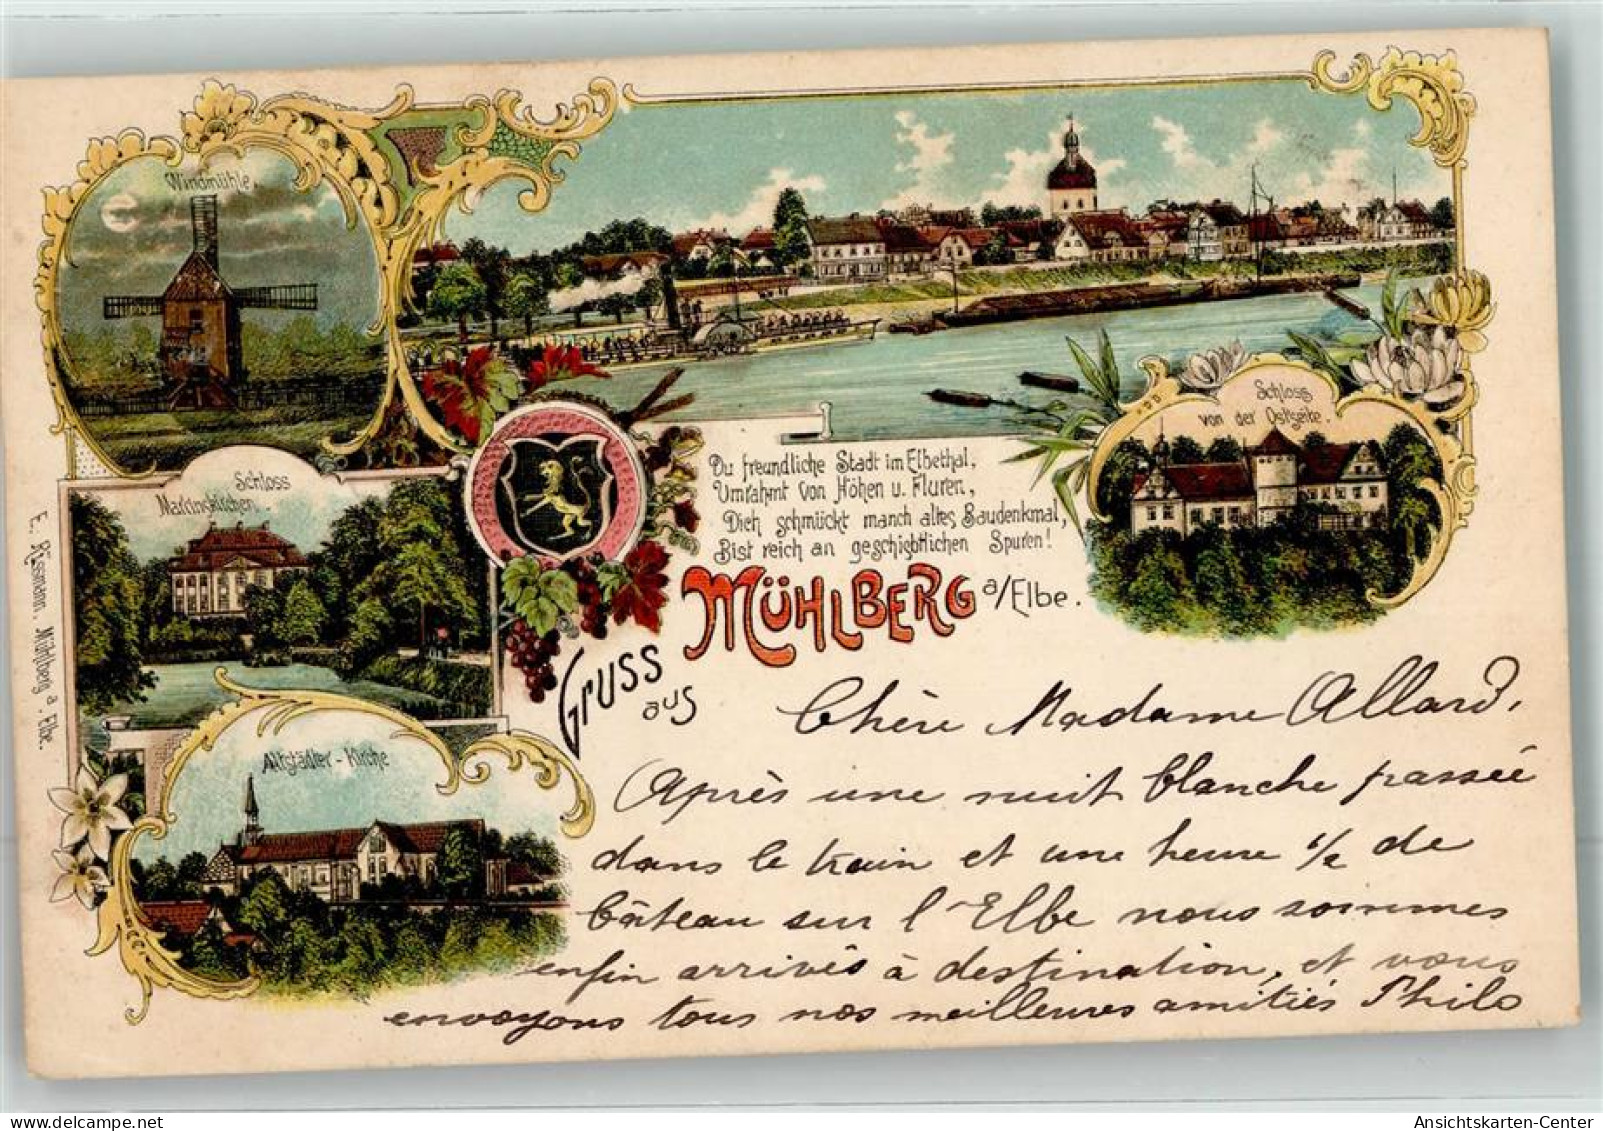 Windmühle.
Schloss
von der Ostseite.
Schloss
Martinskirchen.
Du freundliche Stadt im Elbethal,
Umrahmt von Höhen u. Fluren,
Dich schmückt manch altes Baudenkmal,
Bist reich an geschichtlichen Spuren!
Gruss
aus
MÜHLBERG a/Elbe.
Altstädter-Kirche
E. Rissmann, Mühlberg a. Elbe.
Chère Madame Allard,
Après une nuit blanche passée
dans le train et une heure 1/2 de
bâteau sur l'Elbe nous sommes
enfin arrivés à destination, et vous
envoyons tous nos meilleures amitiés Philo
Ansichtskarten-Center